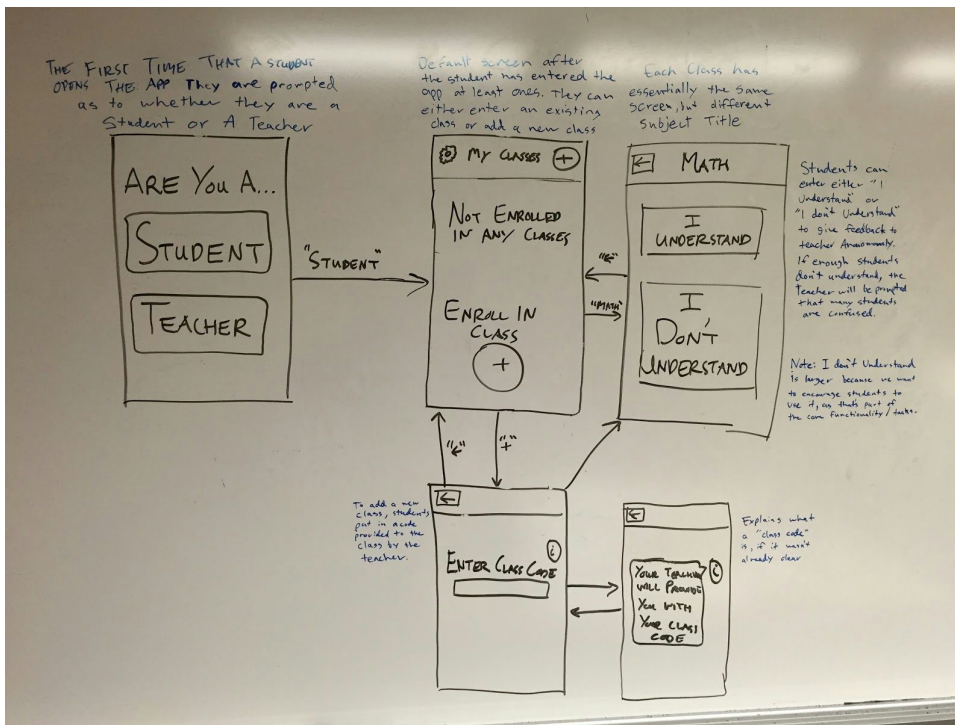 THE FIRST TIME THAT A STUDENT
OPENS THE APP They are prompted
as to whether they are a
Student or A Teacher
ARE YOU A...
STUDENT
TEACHER
"STUDENT"
Default screen after
the student has entered the
app at least ones. They can
either enter an existing
class or add a new class
MY CLASSES +
NOT ENROLLED
IN ANY CLASSES
ENROLL IN
CLASS
+
"←"
"MATH"
Each Class has
essentially the same
screen, but different
Subject Title
← MATH
I
UNDERSTAND
I
DON'T
UNDERSTAND
Students can
enter either "I
Understand" or
"I don't Understand"
to give feedback to
teacher Anonymously.
If enough students
don't understand, the
teacher will be prompted
that many students
are confused.
Note: I don't Understand
is larger because we want
to encourage students to
use it, as that's part of
the core functionality/tasks.
"←"
"+"
To add a new
class, students
put in a code
provided to the
class by the
teacher.
←
i
ENTER CLASS CODE
←
YOUR TEACHER i
WILL PROVIDE
YOU WITH
YOUR CLASS
CODE
Explains what
a "class code"
is, if it wasn't
already clear